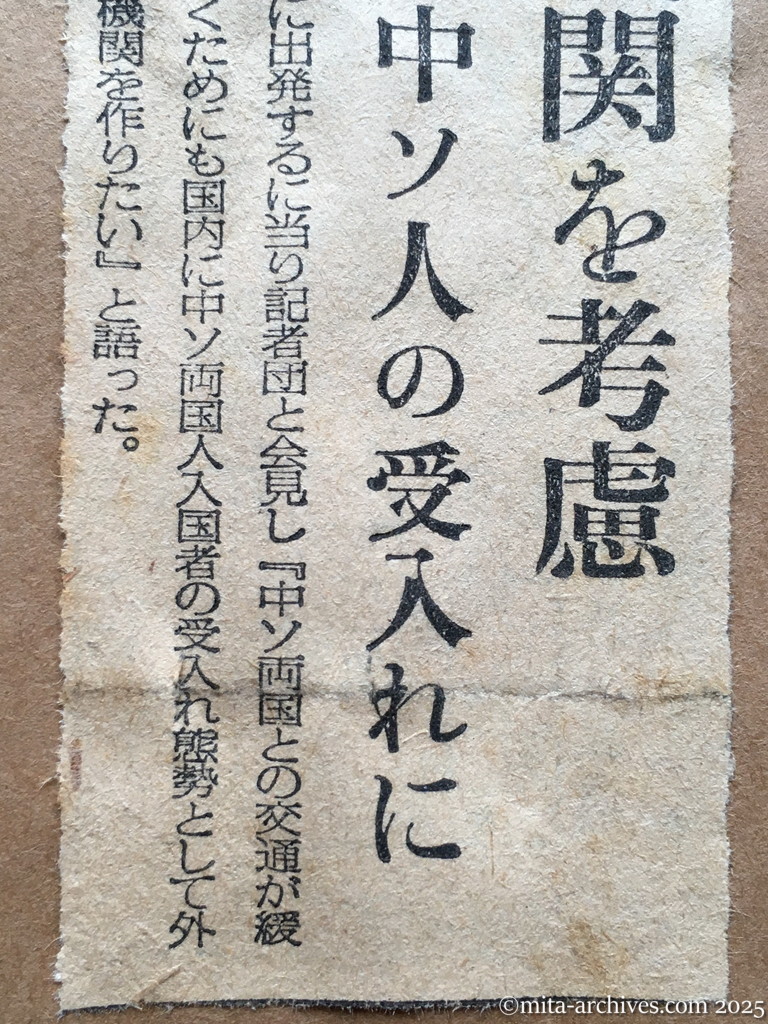 関を考慮
中ソ人の受入れに
に出発するに当り記者団と会見し『中ソ両国との交通が緩
くためにも国内に中ソ両国人入国者の受入れ態勢として外
機関を作りたい』と語った。
©mita-archives.com 2025